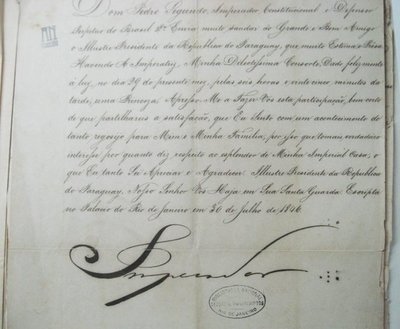 Dom Pedro Segundo, Imperador Constitucional e Defensor
Perpetuo do Brasil &ª Envia muito saudar ao Grande e Bom Amigo
o Illustre Presidente da Republica do Paraguay, que muito Estima e Presa
Havendo A Imperatriz, Minha Dilectissima Consorte, Dado felizmente
á luz, no dia 29 do presente mez, pelas seis horas e vinte cinco minutos da
tarde, uma Princeza: Apresso-Me a Fazer-Vos esta participação, bem certo
de que partilhareis a satisfação, que Eu Sinto com um acontecimento de
tanto regosijo para Mim e Minha Familia, por isso que tomais verdadeiro
interesse por quanto diz respeito ao esplendor de Minha Imperial Casa; o
que Eu tanto Sei Apreciar e Agradecer. Illustre Presidente da Republica
do Paraguay, Nosso Senhor Vos Haja em Sua Santa Guarda. Escripta
no Palacio do Rio de Janeiro em 30 de Julho de 1846.
Imperador
RIO DE JANEIRO